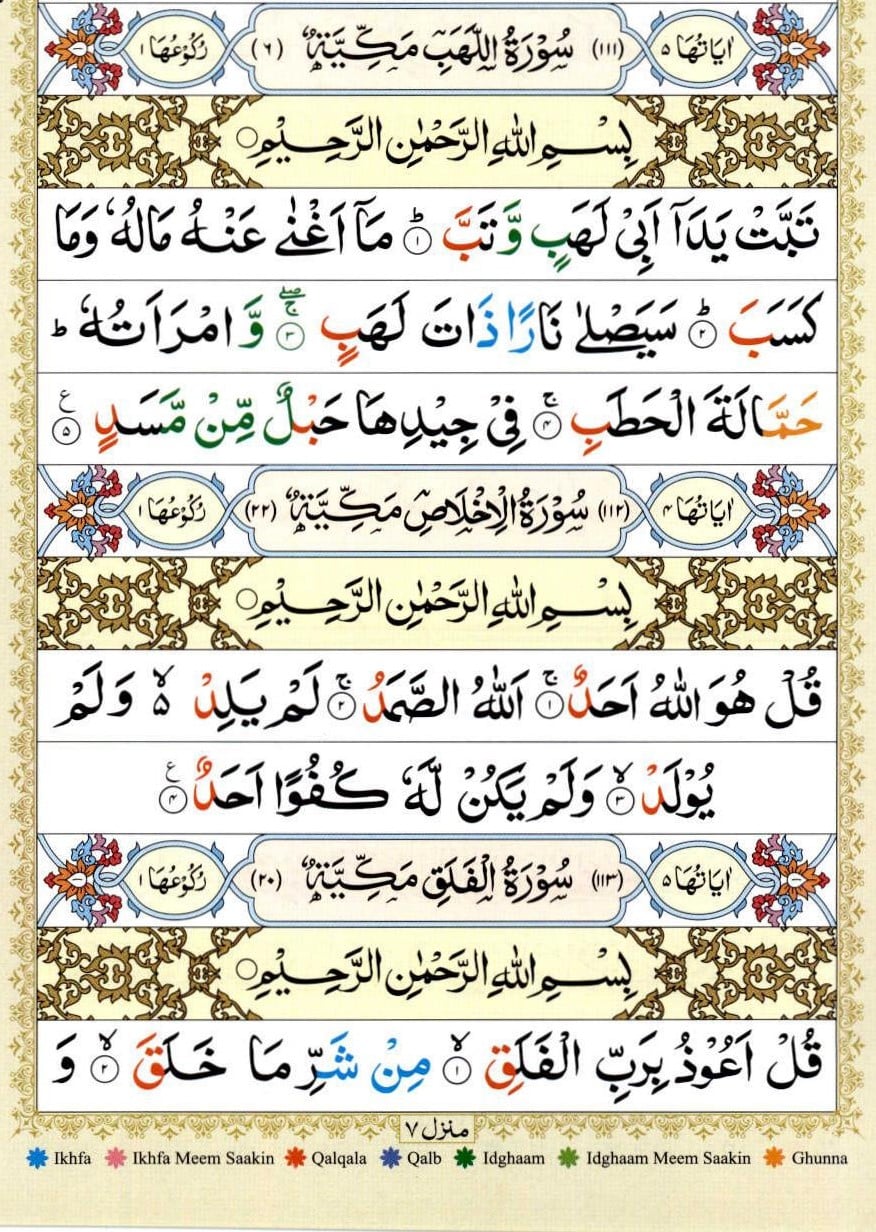 اٰيَاتُهَا ٥ (١١١) سُوْرَةُ اللَّهَبِ مَكِّيَّةٌ (٦) رُكُوْعُهَا ١
بِسْمِ اللهِ الرَّحْمٰنِ الرَّحِيْمِ ○
تَبَّتْ يَدَاۤ اَبِىْ لَهَبٍ وَّ تَبَّ ؕ ١ مَاۤ اَغْنٰى عَنْهُ مَالُهٗ وَمَا
كَسَبَ ؕ ٢ سَيَصْلٰى نَارًا ذَاتَ لَهَبٍ ۖۚ ٣ وَّ امْرَاَتُهٗ ؕ
حَمَّالَةَ الْحَطَبِ ۚ ٤ فِىْ جِيْدِهَا حَبْلٌ مِّنْ مَّسَدٍ ع ٥
اٰيَاتُهَا ٤ (١١٢) سُوْرَةُ الْاِخْلَاصِ مَكِّيَّةٌ (٢٢) رُكُوْعُهَا ١
بِسْمِ اللهِ الرَّحْمٰنِ الرَّحِيْمِ ○
قُلْ هُوَ اللهُ اَحَدٌ ۚ ١ اَللهُ الصَّمَدُ ۚ ٢ لَمْ يَلِدْ ۙ ۵ وَلَمْ
يُوْلَدْ ۙ ٣ وَلَمْ يَكُنْ لَّهٗ كُفُوًا اَحَدٌ ع ٤
اٰيَاتُهَا ٥ (١١٣) سُوْرَةُ الْفَلَقِ مَكِّيَّةٌ (٢٠) رُكُوْعُهَا ١
بِسْمِ اللهِ الرَّحْمٰنِ الرَّحِيْمِ ○
قُلْ اَعُوْذُ بِرَبِّ الْفَلَقِ ۙ ١ مِنْ شَرِّ مَا خَلَقَ ۙ ٢ وَ
منزل ٧
Ikhfa Ikhfa Meem Saakin Qalqala Qalb Idghaam Idghaam Meem Saakin Ghunna